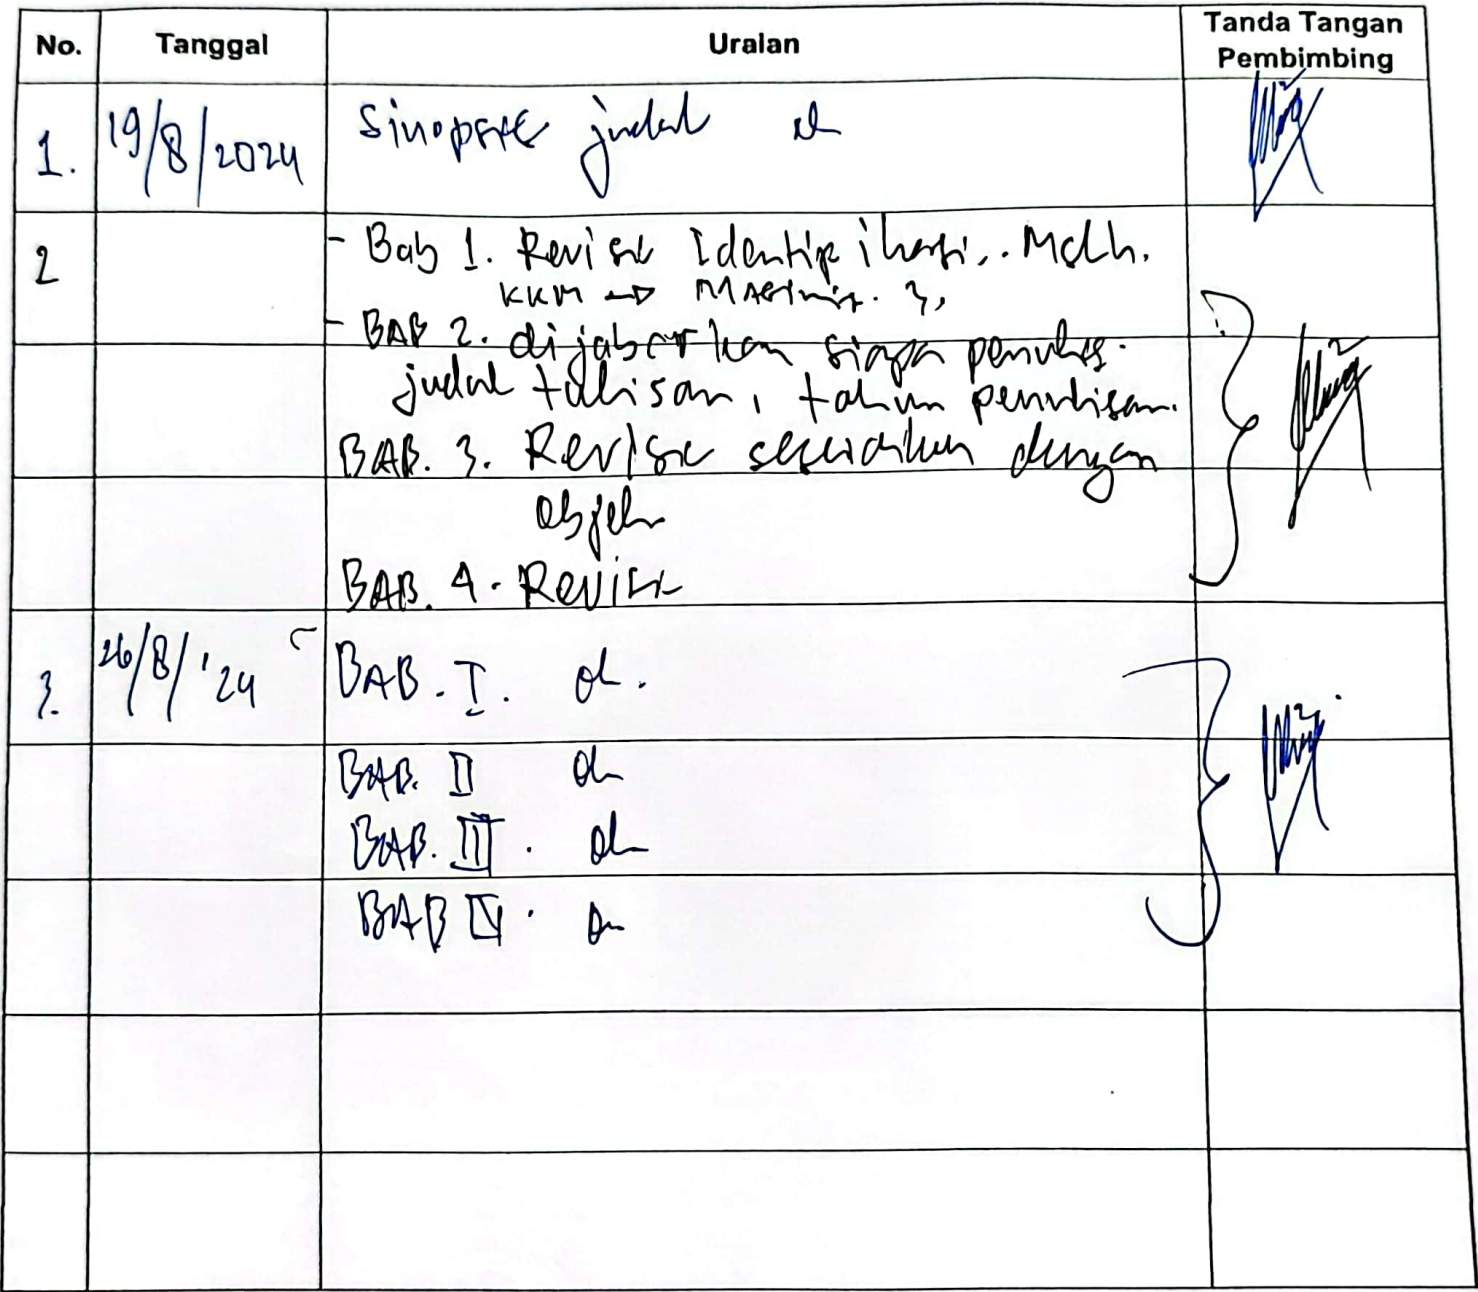 No. Tanggal Uraian Tanda Tangan Pembimbing
1. 19/8/2024 Sinopsis judul ok
2 - Bab 1. Revisi Identipikasi.. Mslh.
KKM → Masinis. 3,
- BAB 2. dijabarkan siapa penulis.
judul tulisan, tahun penulisan.
BAB. 3. Revisi sesuaikan dengan
objek
BAB. 4. Revisi
3. 26/8/'24 BAB. I. ok.
BAB. II ok
BAB. III. ok
BAB IV. ok